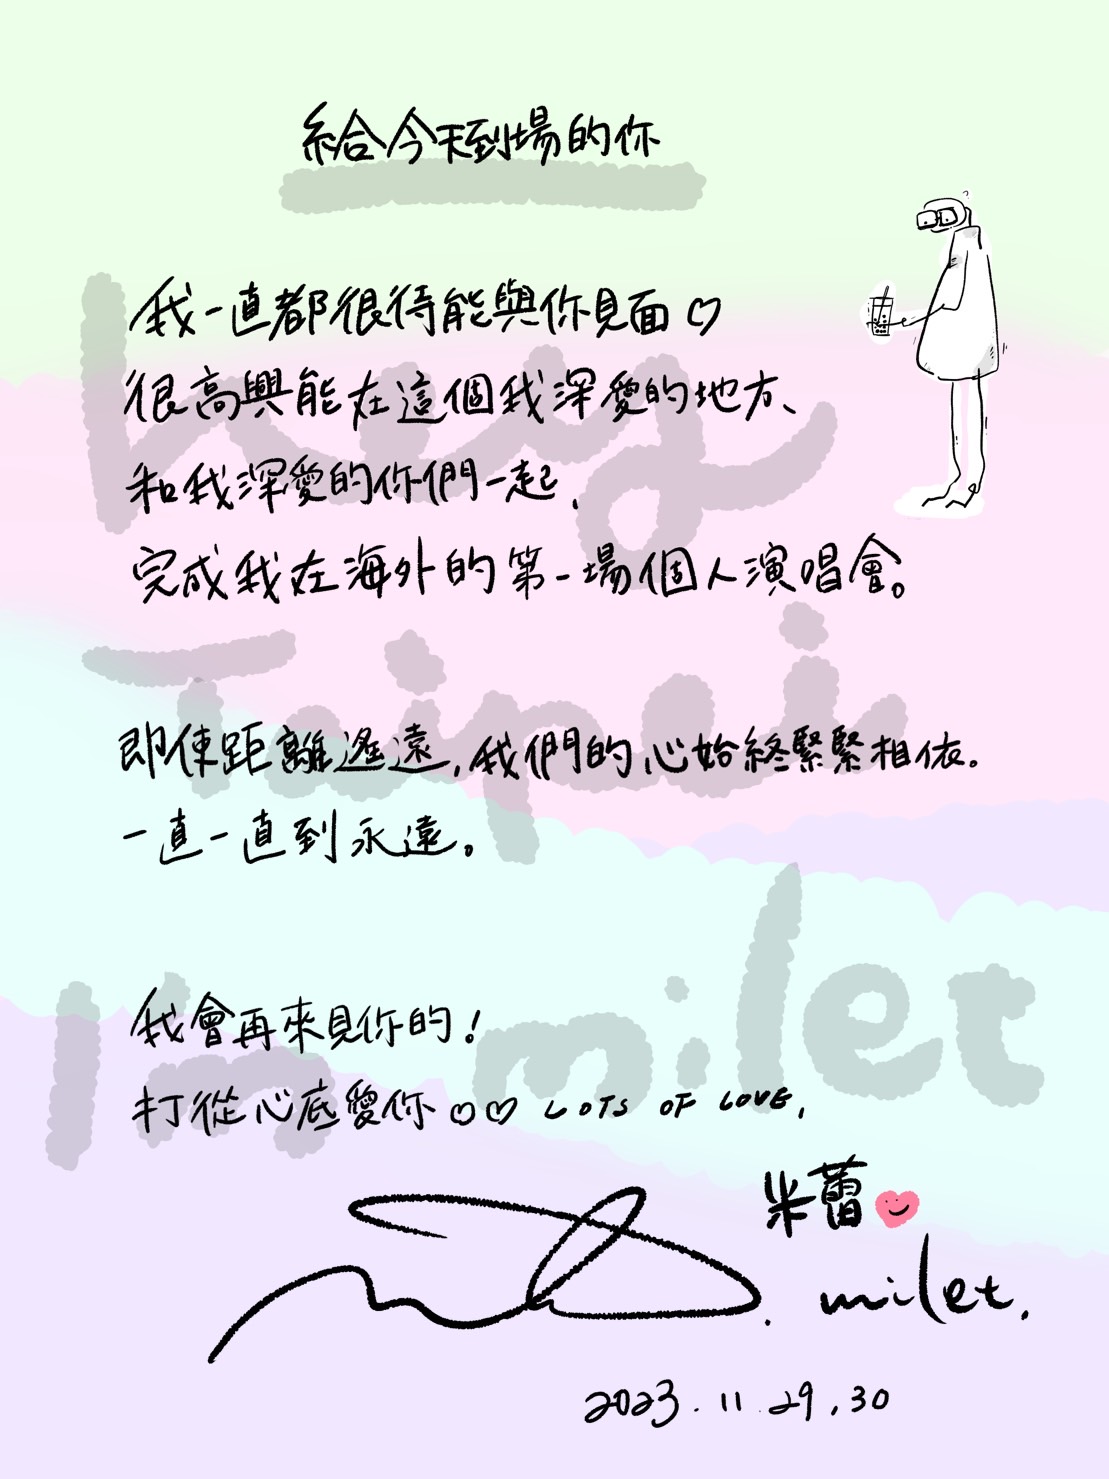 給今天到場的你
我一直都很待能與你見面♡
很高興能在這個我深愛的地方、
和我深愛的你們一起，
完成我在海外的第一場個人演唱會。
即使距離遙遠，我們的心始終緊緊相依。
一直一直到永遠。
我會再來見你的！
打從心底愛你♡♡ LOTS OF LOVE,
米蕾
milet.
2023.11.29,30
hey
Taipei
I'm milet